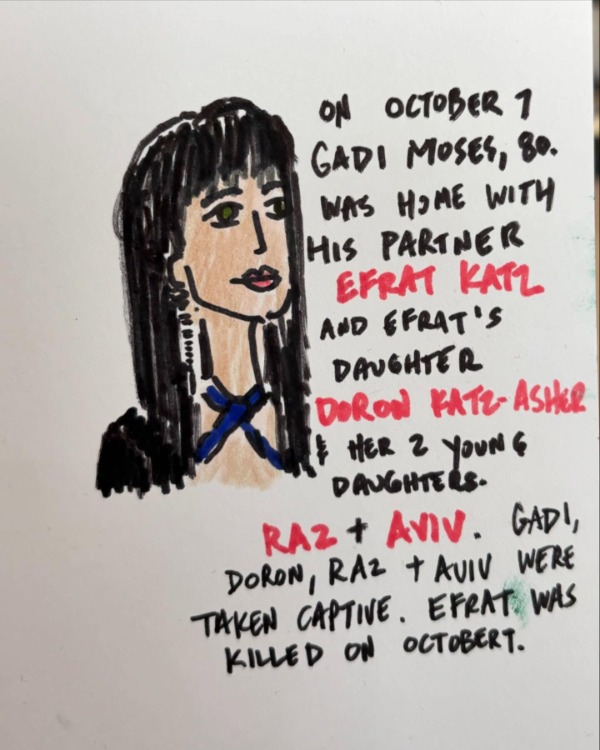 ON OCTOBER 7
GADI MOSES, 80.
WAS HOME WITH
HIS PARTNER
EFRAT KATZ
AND EFRAT'S
DAUGHTER
DORON KATZ-ASHER
& HER 2 YOUNG
DAUGHTERS.
RAZ + AVIV. GADI,
DORON, RAZ + AVIV WERE
TAKEN CAPTIVE. EFRAT WAS
KILLED ON OCTOBER 7.